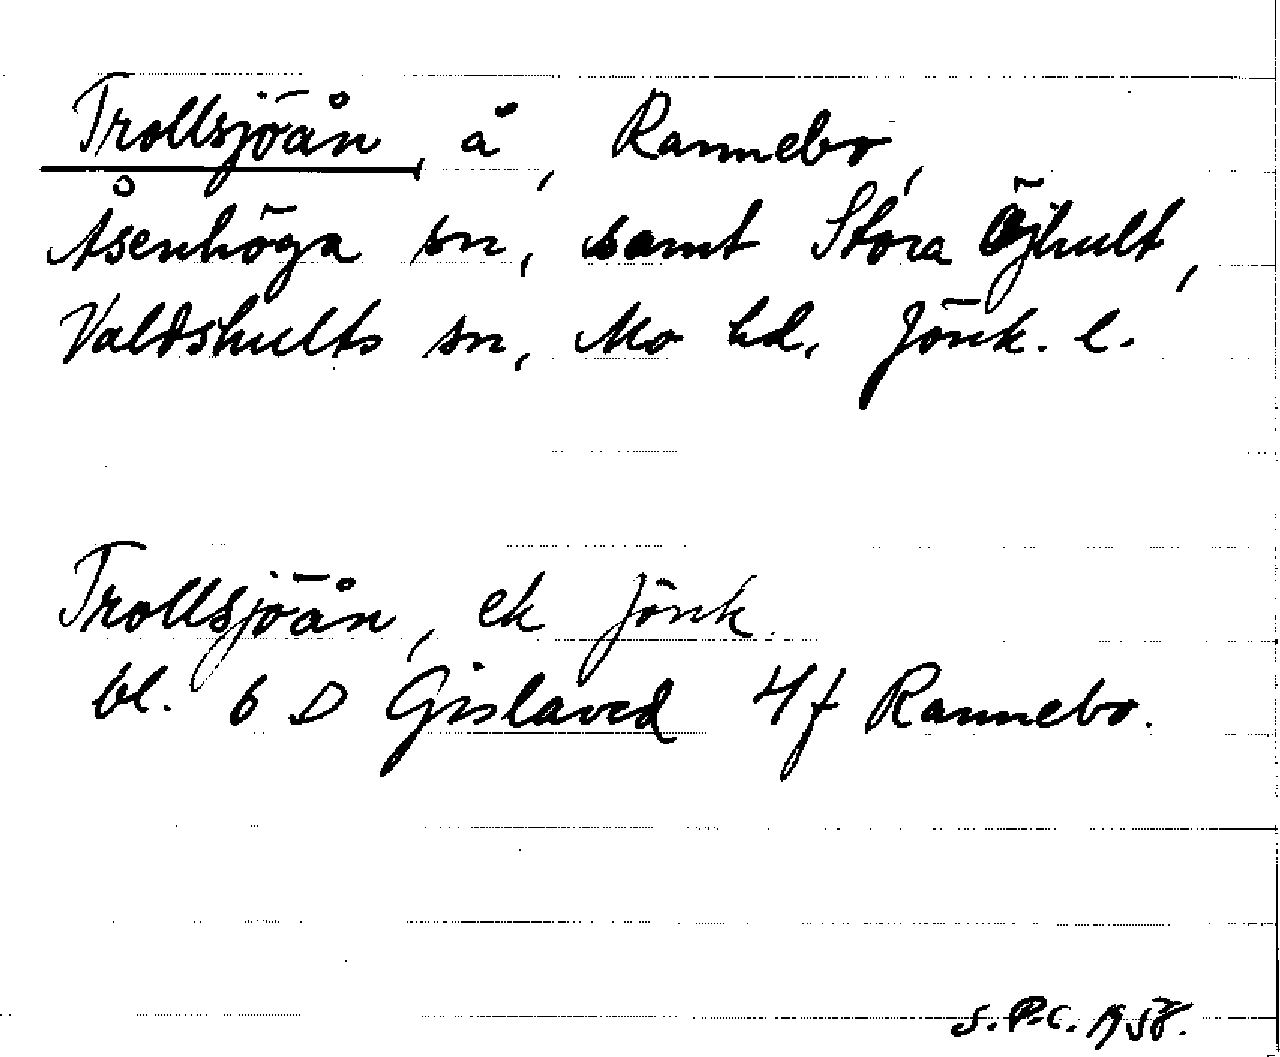 Trollsjöån, å, Rannebo,
Åsenhöga sn, samt Stora Öjhult,
Valdshults sn, Mo hd, Jönk. l.
Trollsjöån, ek Jönk.
bl. 6 D Gislaved 4f Rannebo.
S.P-C. 1958.